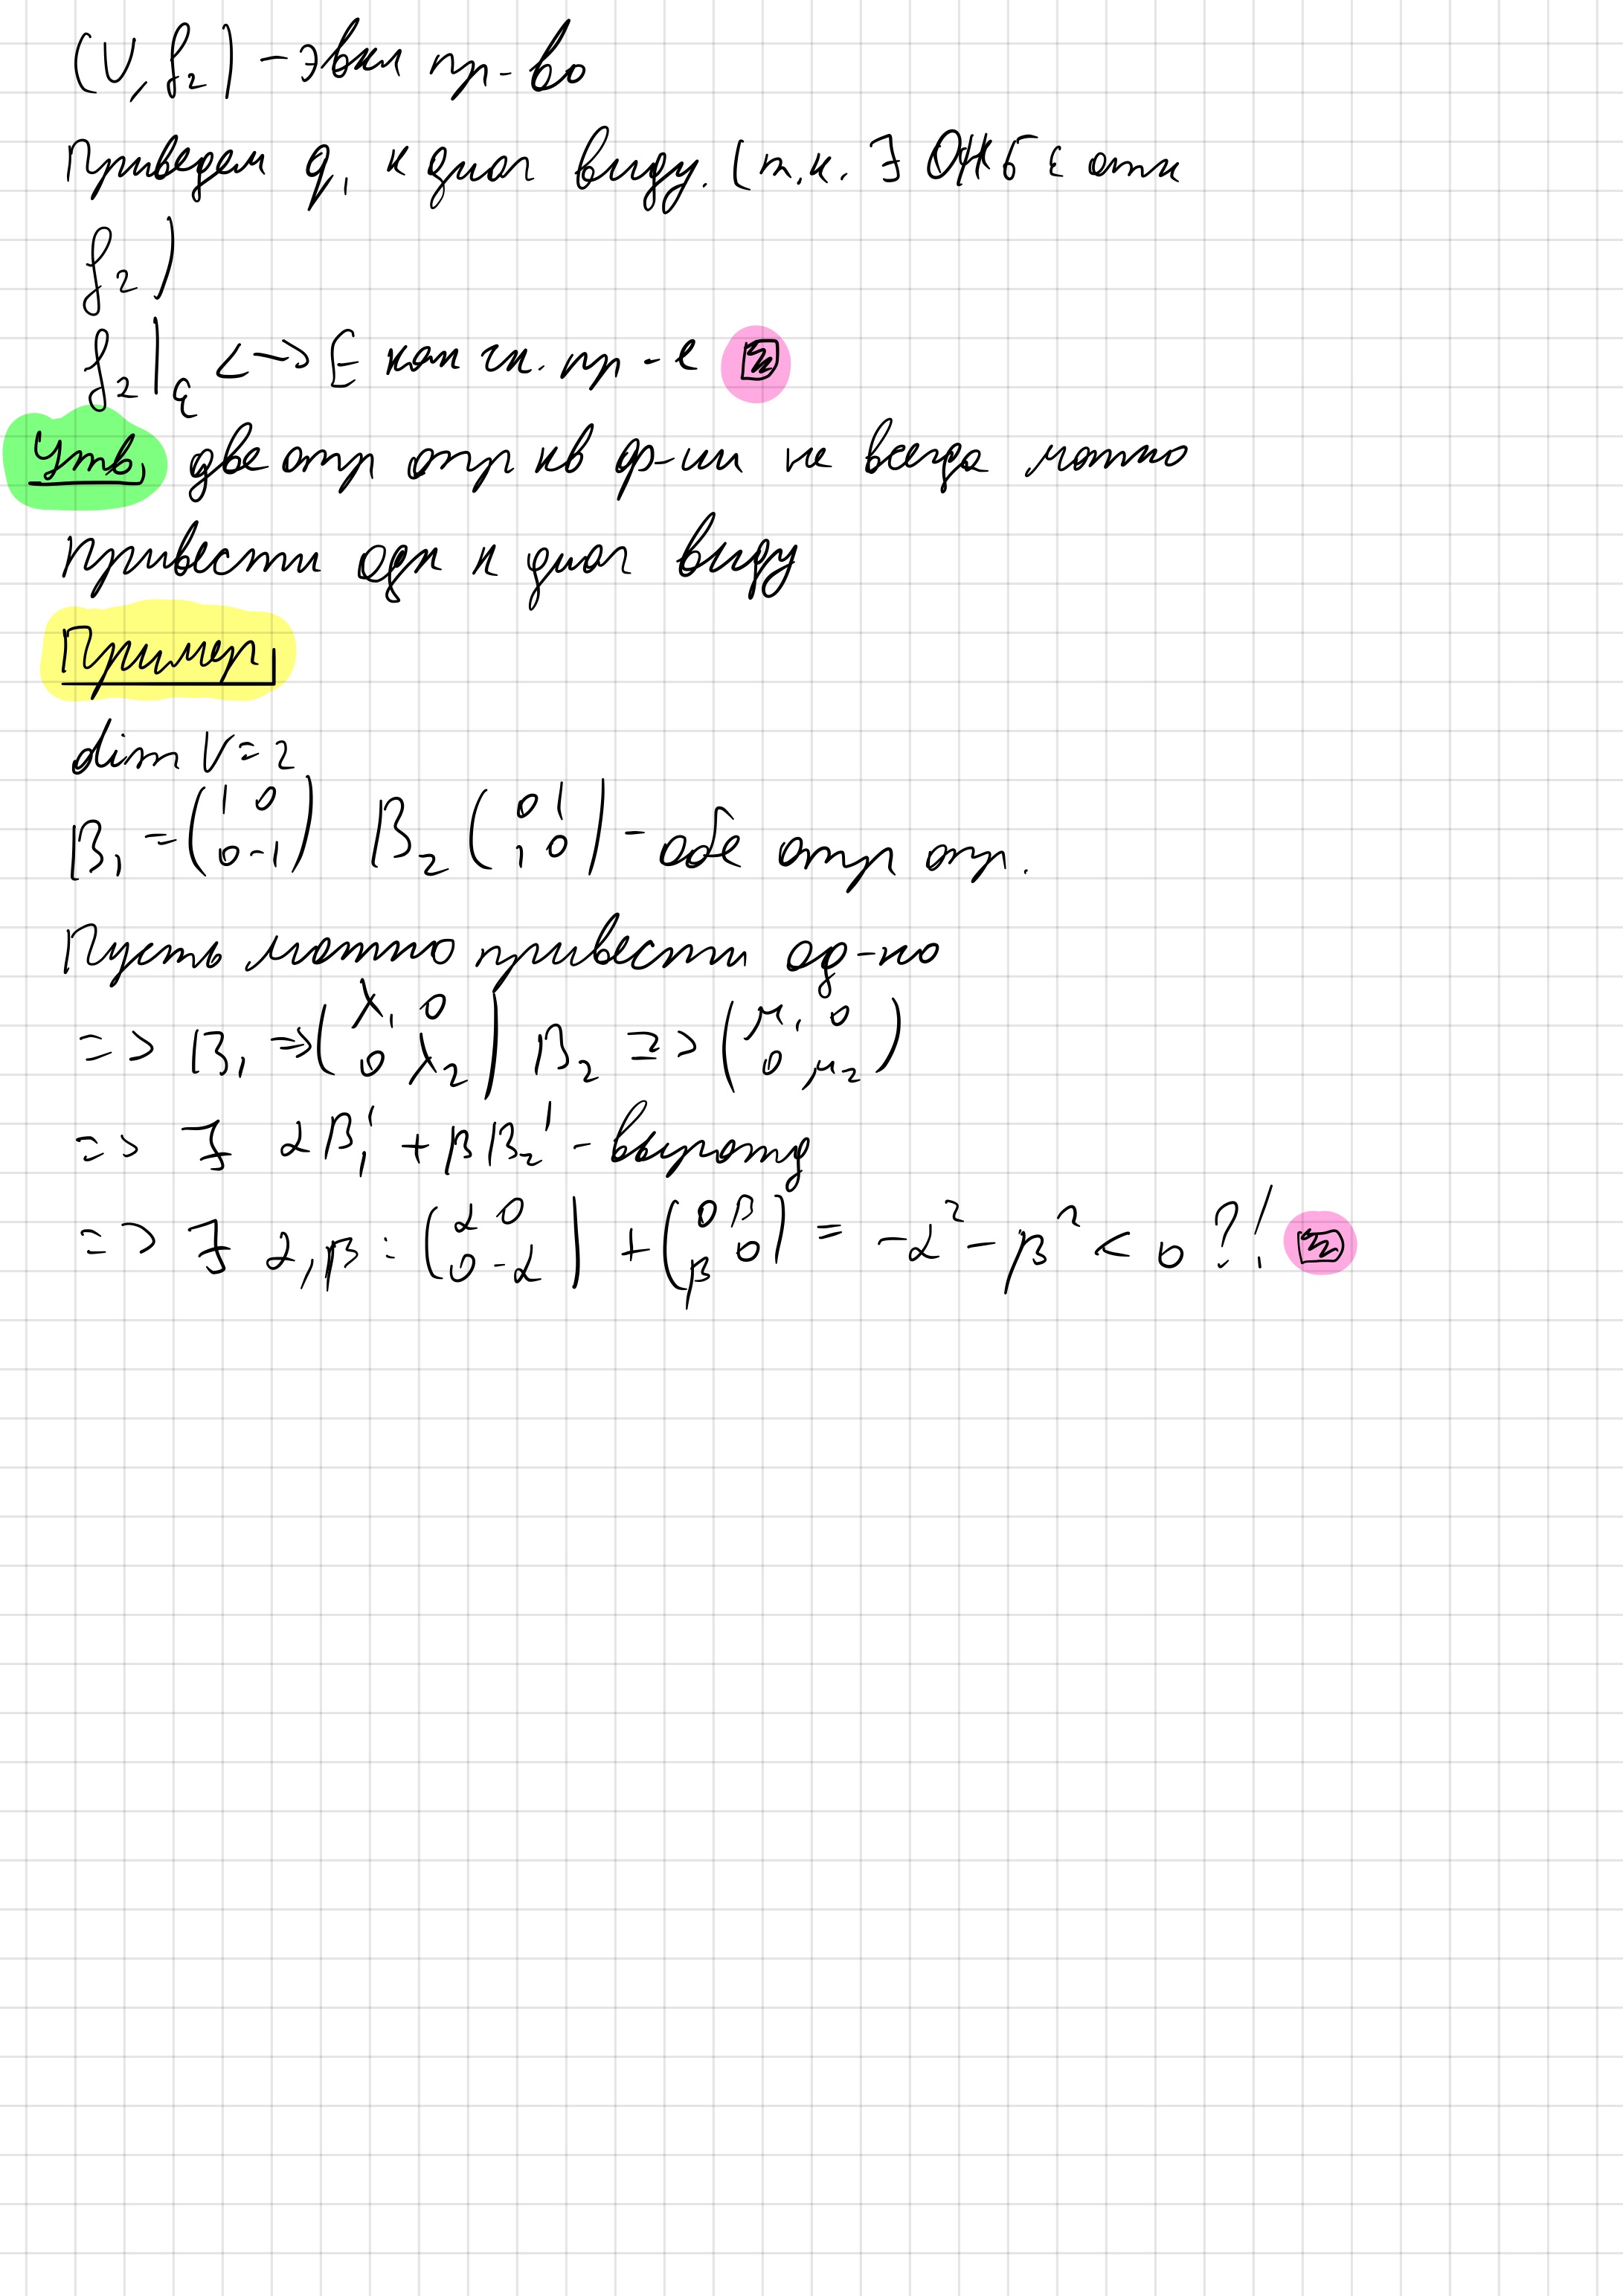 (V, f₂) – эвкл пр-во
Приведем q₁ к диаг виду. (т.к. ∃ ОНБ с отн
f₂)
f₂|q <-> E как ск. пр-е
Утв, две отр опр кв ф-ии не всегда можно
привести одн к диаг виду
Пример,
dim V = 2
B₁ = (1 0; 0 -1) B₂ (0 1; 1 0) – обе отр опр.
Пусть можно привести од-но
=> B₁ => (λ₁ 0; 0 λ₂) B₂ => (μ₁ 0; 0 μ₂)
=> ∃ αB₁' + βB₂' – вырожд
=> ∃ α, β : (α 0; 0 -α| + (0 β; β 0) = -α² - β² < 0 ?!